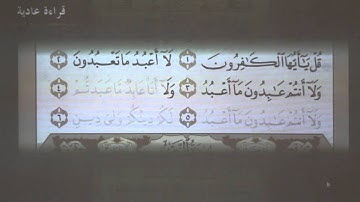 قراءة عادية
قُلْ يَٰٓأَيُّهَا ٱلْكَٰفِرُونَ ١ لَآ أَعْبُدُ مَا تَعْبُدُونَ ٢
وَلَآ أَنتُمْ عَٰبِدُونَ مَآ أَعْبُدُ ٣ وَلَآ أَنَا۠ عَابِدٌ مَّا عَبَدتُّمْ ٤
وَلَآ أَنتُمْ عَٰبِدُونَ مَآ أَعْبُدُ ٥ لَكُمْ دِينُكُمْ وَلِىَ دِينِ ٦